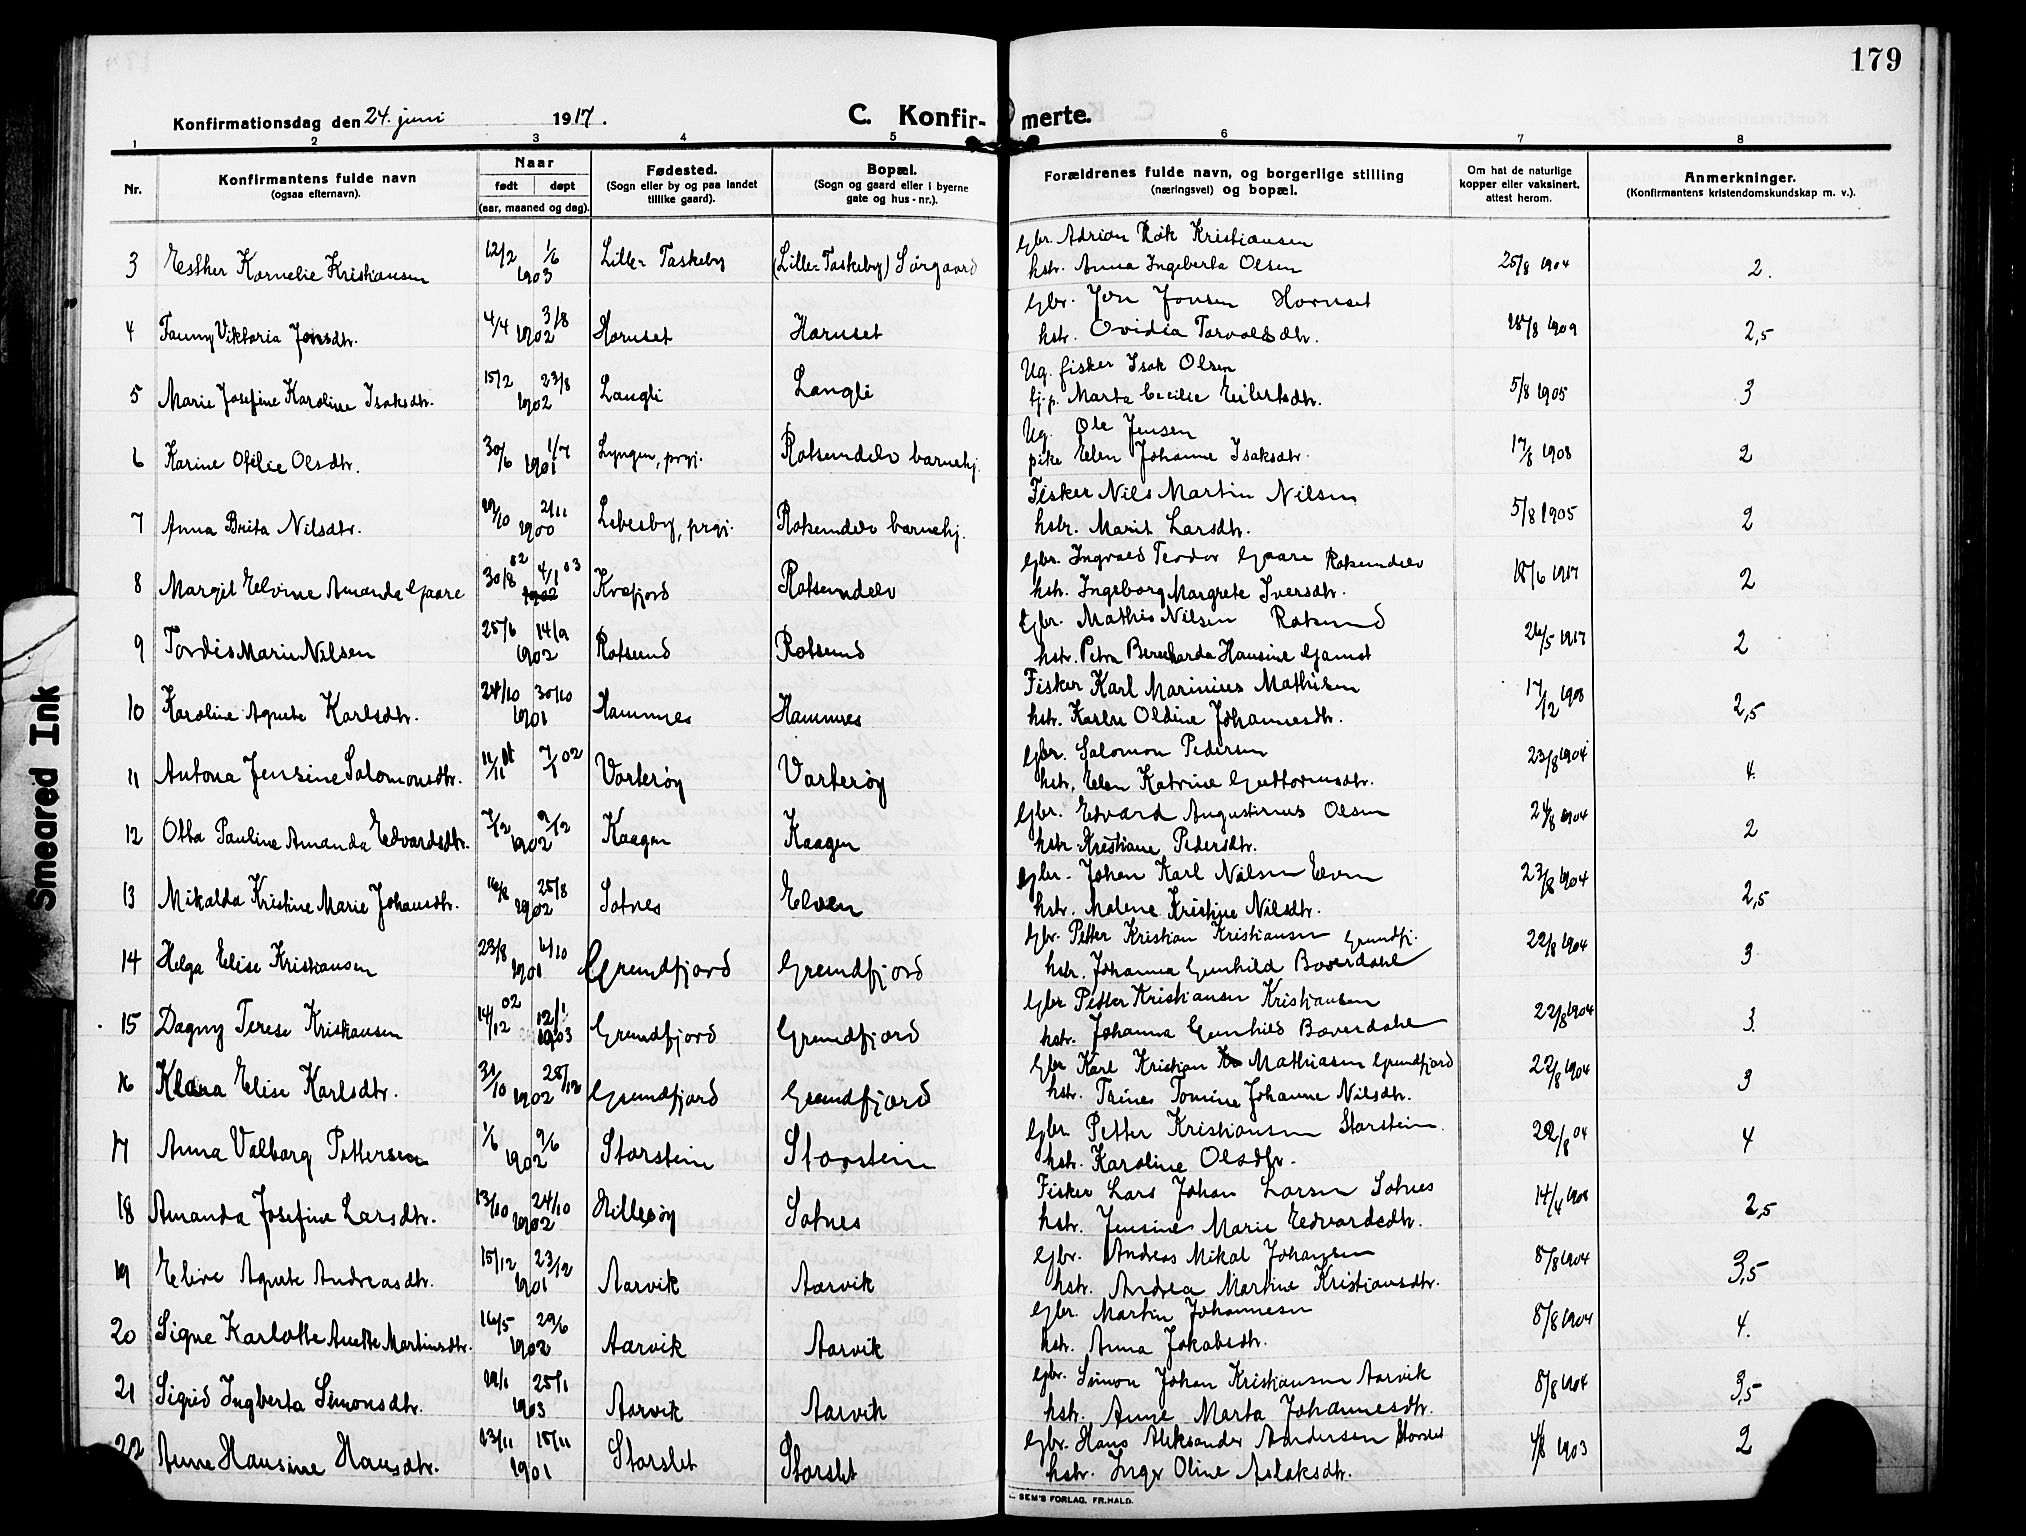 179
Konfirmationsdag den 24. juni 1917.
C. Konfir- merte.
1 2 3 4 5 6 7 8
Nr.
Konfirmantens fulde navn
(ogsaa efternavn).
Naar
født døpt
(aar, maaned og dag).
Fødested.
(Sogn eller by og paa landet
tillike gaard).
Bopæl.
(Sogn og gaard eller i byerne
gate og hus-nr.).
Forældrenes fulde navn, og borgerlige stilling
(næringsvei) og bopæl.
Om hat de naturlige
kopper eller vaksinert,
attest herom.
Anmerkninger.
(Konfirmantens kristendomskundskap m. v.).
3 Esther Kornelie Kristiansen 12/2 1/6 1903 Lille-Taskeby (Lille-Taskeby) Sørgaard Gbr. Adrian Kristiansen
hstr. Anna Ingeberta Olsen 25/8 1904 2.
4 Fanny Viktoria Jonsdtr. 4/4 3/8 1902 Havnset Havnset Gbr. Jon Jonsen Havnset
hstr. Ovidia Torvalsdtr. 18/8 1909 2,5
5 Marie Josefine Karoline Isaksdtr. 15/2 23/8 1902 Langli Langli Ug. fisker Isak Olsen
tj.p. Marta Cecilie Eilertsdtr. 5/8 1905 3
6 Karine Ofelie Olsdtr. 30/6 1/7 1901 Lyngen, prgj. Rotsundelv barnehj. Ug. Ole Jensen
pike Elen Johanne Isaksdtr. 17/8 1908 2
7 Anna Brita Nilsdtr. 2/11 1900 Lebesby, prgj. Rotsundelv barnehj. Fisker Nils Martin Nilsen
hstr. Marit Larsdtr. 5/8 1905 2
8 Margit Elvine Amanda Gaare 30/8 02 4/1 03 1902 Kvæfjord Rotsundelv Gbr. Ingvald Teodor Gaare Rotsundelv
hstr. Ingeborg Margrete Iversdtr. 18/6 1917 2
9 Tordis Marie Nilsen 25/6 14/9 1902 Rotsund Rotsund Gbr. Mathis Nilsen Rotsund
hstr. Petra Bernharda Hansine Gamst 26/5 1917 2
10 Karoline Agnete Karlsdtr. 24/10 30/10 1901 Hamnnes Hamnnes Fisker Karl Marinius Mathisen
hstr. Karen Oldine Johannesdtr. 17/12 1908 2,5
11 Antona Jensine Salomonsdtr. 11/11 01 7/1 02 Vorterøy Vorterøy Gbr. Salomon Pedersen
hstr. Elen Katrine Guttormsdtr. 23/8 1904 4.
12 Otta Pauline Amanda Edvardsdtr. 7/2 9/12 1902 Kaagen Kaagen Gbr. Edvard Augustinus Olsen
hstr. Kristiane Pedersdtr. 24/8 1904 2
13 Mikalda Kristine Marie Johansdtr. 16/8 25/8 1902 Sotnes Elven Gbr. Johan Karl Nilsen Elven
hstr. Malene Kristine Nilsdtr. 23/8 1904 2,5
14 Helga Elise Kristiansen 23/8 6/10 1901 Grundfjord Grundfjord Gbr. Petter Kristian Kristiansen Grundfj.
hstr. Johanna Gunhild Boverdahl 22/8 1904 3
15 Dagny Terese Kristiansen 14/12 02 12/1 1903 Grundfjord Grundfjord Gbr Petter Kristiansen Kristiansen
hstr. Johanna Gunhild Boverdahl 22/8 1904 3.
16 Klara Elise Karlsdtr. 31/10 28/12 1902 Grundfjord Grundfjord Gbr Karl Kristian Mathiasen Grundfjord
hstr. Trine Tomine Johanne Nilsdtr. 22/8 1904 3
17 Anna Valborg Pettersen 1/6 9/6 1902 Storstein Storstein Gbr Petter Kristiansen Storstein.
hstr. Karoline Olsdtr. 22/8 04 4
18 Amanda Josefine Larsdtr. 13/10 24/10 1902 Hillesøy Sotnes Fisker Lars Johan Larsen Sotnes
hstr. Jensine Marie Edvardsdtr. 14/4 1908 2,5
19 Elive Agnete Andreasdtr. 15/12 23/12 1901 Aarvik Aarvik Gbr. Andreas Mikal Johansen
hstr. Andrea Martine Kristiansdtr. 8/8 1904 3,5
20 Signe Karlotte Anette Martinsdtr. 16/5 29/6 1902 Aarvik Aarvik Gbr. Martin Johannesen
hstr. Anna Jakobsdtr. 8/8 1904 4.
21 Sigrid Ingberta Simonsdtr. 19/1 25/1 1903 Aarvik Aarvik Gbr. Simon Johan Kristiansen Aarvik
hstr. Anne Marta Johannesdtr. 8/8 1904 3,5
22 Anne Hansine Hansdtr. 13/11 15/11 1901 Storslet Storslet Gbr. Hans Aleksander Andersen Storslet
hstr. Inger Oline Aslaksdtr. 4/8 1903 2
SEM'S FORLAG, FR.HALD.
Smeared Ink